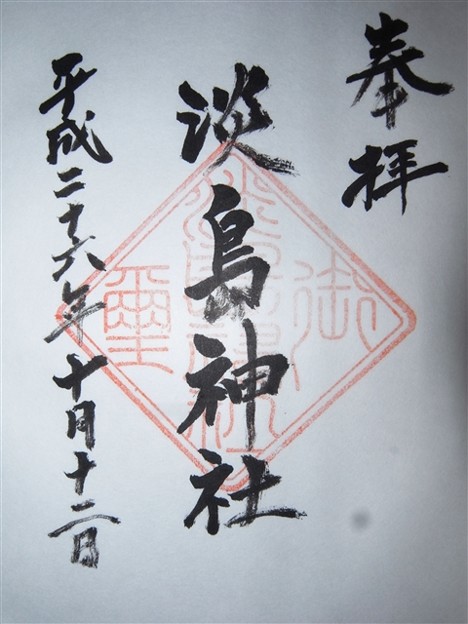 奉拝
淡島神社
平成二十六年十月十二日
御璽